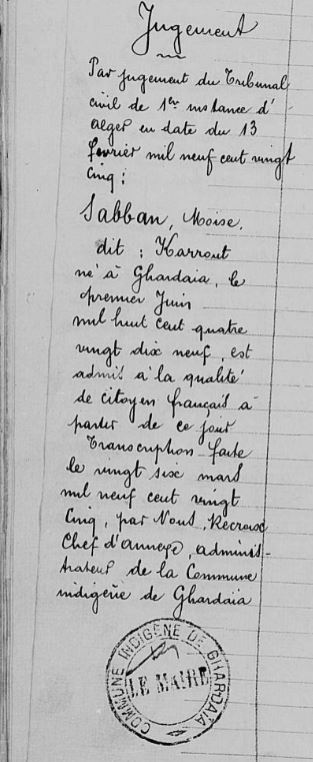 Jugement
Par jugement du Tribunal
civil de 1ère instance d'
Alger en date du 13
février mil neuf cent vingt
cinq ;
Sabban, Moïse,
dit : Karrout
né à Ghardaia, le
premier Juin
mil huit cent quatre
vingt dix neuf, est
admis à la qualité
de citoyen français à
partir de ce jour
Transcription faite
le vingt six mars
mil neuf cent vingt
cinq, par Nous,
Chef d'annexe, adminis-
trateur de la Commune
indigène de Ghardaïa
COMMUNE INDIGÈNE DE GHARDAIA
LE MAIRE